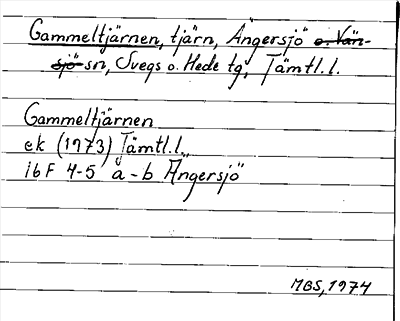 Gammeltjärnen, tjärn, Ängersjö o. Vän-
sjö sn, Svegs o. Hede tg, Jämtl.l.
Gammeltjärnen
ek (1973) Jämtl.l.
16F 4-5 a-b Ängersjö
MBS, 1974